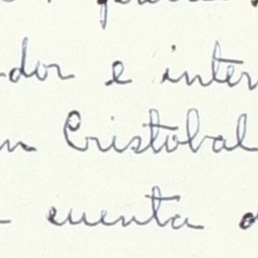 dor e inter
n Cristobal
cuenta